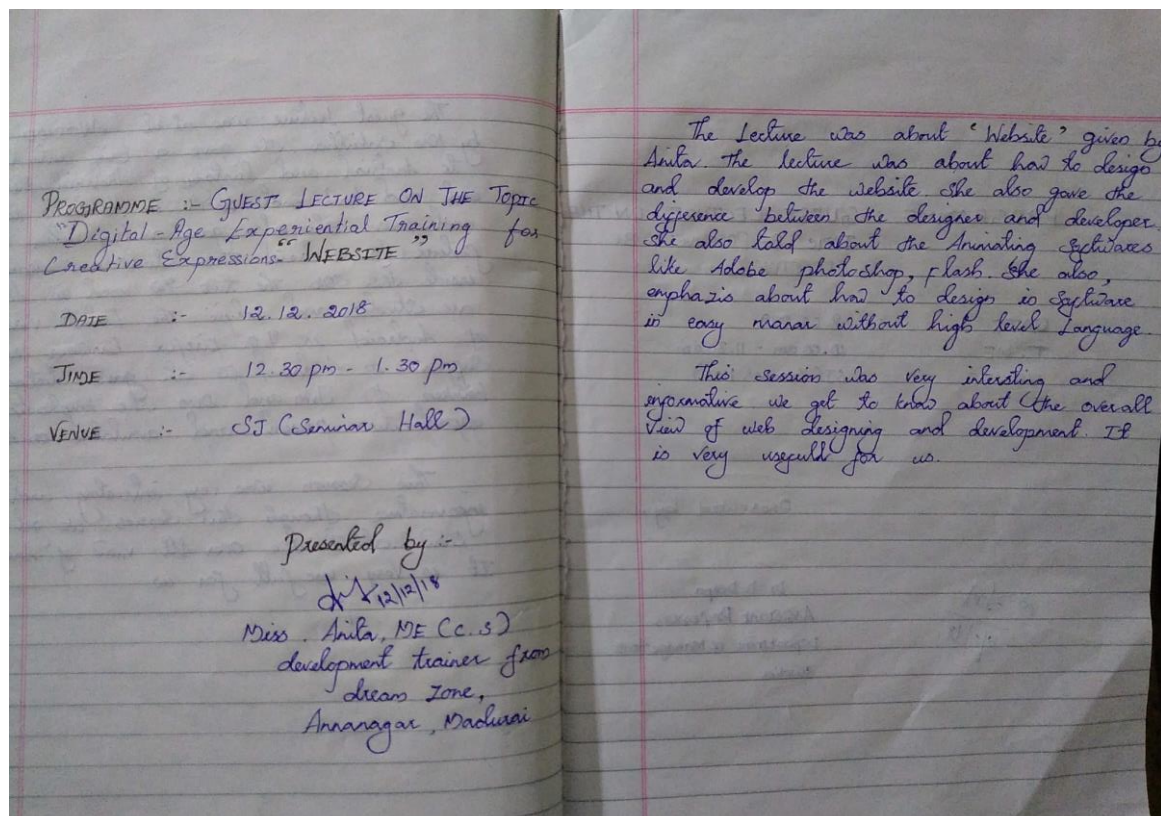 PROGRAMME :- GUEST LECTURE ON THE TOPIC
"Digital-Age Experiential Training for
Creative Expressions- "WEBSITE"
DATE :- 12.12.2018
TIME :- 12.30 pm - 1.30 pm
VENUE :- SJ (Seminar Hall)
Presented by :-
12/12/18
Miss. Anita, ME (C.S)
development trainer from
dream zone,
Annanagar, Madurai
The Lecture was about "Website" given by
Anita. The lecture was about how to design
and develop the website. She also gave the
difference between the designer and developer.
She also told about the Animating Softwares
like Adobe photoshop, Flash. She also,
emphazis about how to design in Software
in easy manar without high level Language.
This session was very intersting and
informative we get to know about the overall
view of web designing and development. It
is very usefull for us.